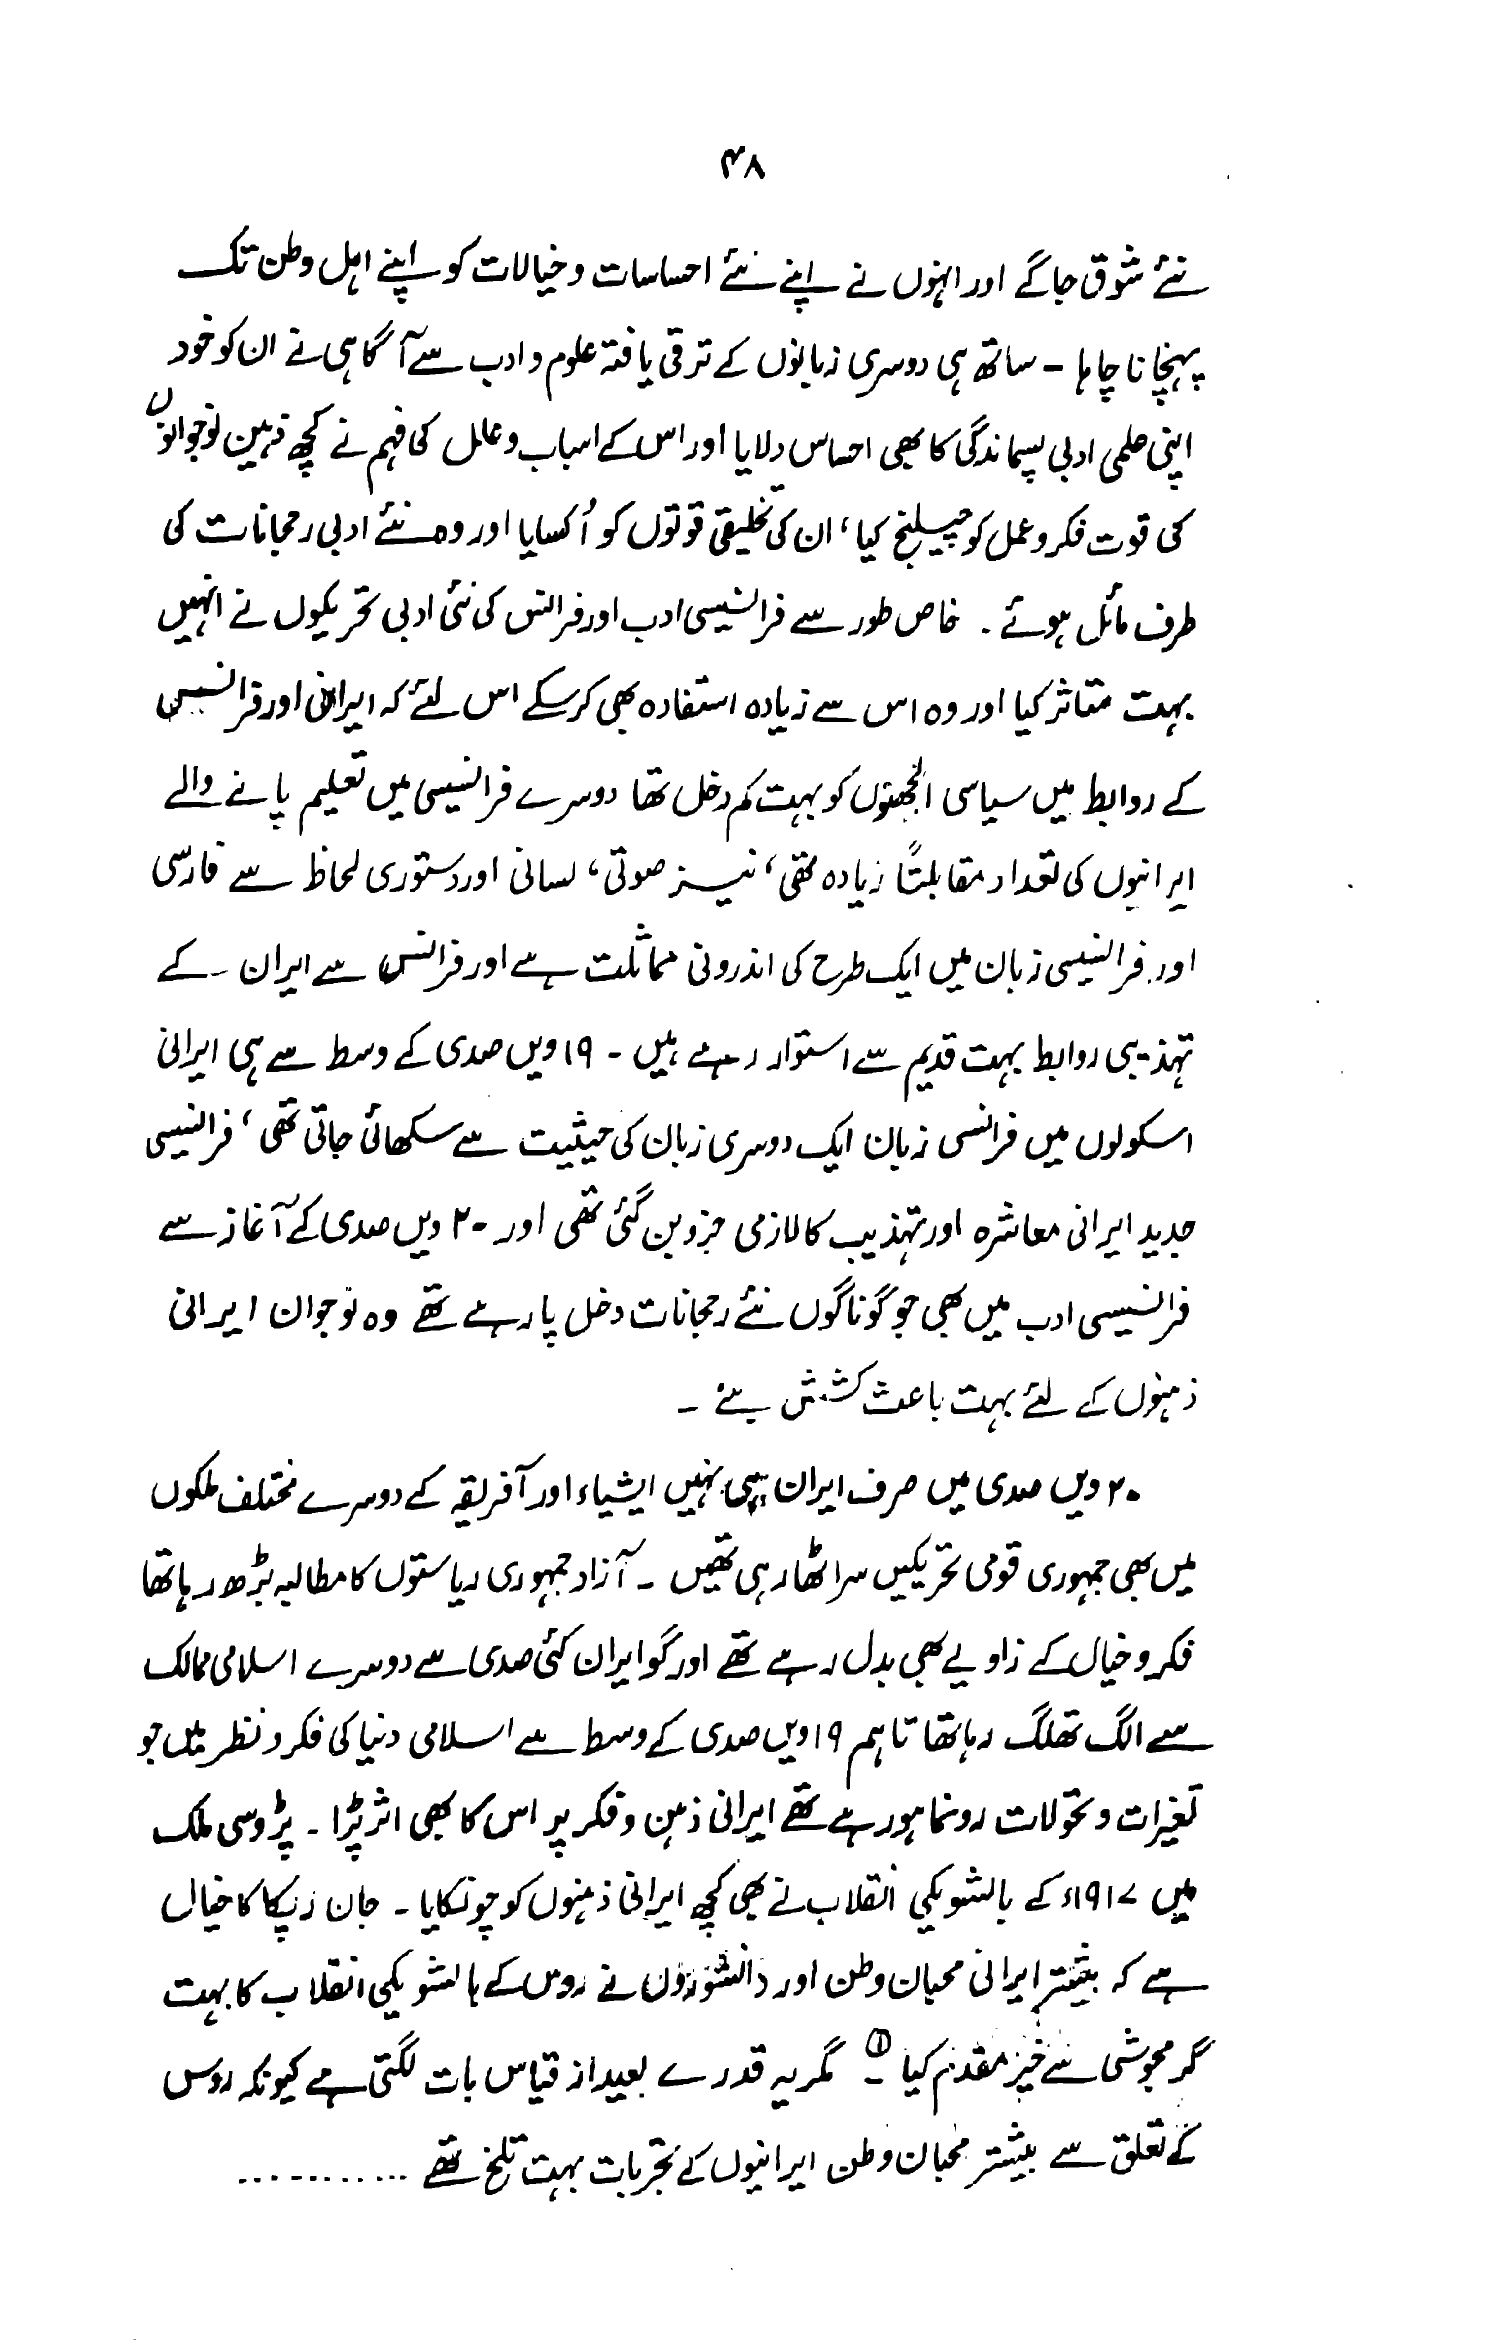 ۴۸
نئے شوق جاگے اور انہوں نے اپنے نئے احساسات و خیالات کو اپنے اہل وطن تک
پہنچانا چاہا ۔ ساتھ ہی دوسری زبانوں کے ترقی یافتہ علوم و ادب سے آگاہی نے ان کو خود
اپنی علمی ادبی پسماندگی کا بھی احساس دلایا اور اس کے اسباب و علل کی فہم نے کچھ ذہین نوجوانوں
کی قوت فکر و عمل کو چیلنج کیا ، ان کی تخلیقی قوتوں کو اُکسایا اور وہ نئے ادبی رحجانات کی
طرف مائل ہوئے ۔ خاص طور سے فرانسیسی ادب اور فرانس کی نئی ادبی تحریکوں نے انہیں
بہت متاثر کیا اور وہ اس سے زیادہ استفادہ بھی کر سکے اس لئے کہ ایرانی اور فرانسیس
کے روابط میں سیاسی الجھنوں کو بہت کم دخل تھا دوسرے فرانسیسی میں تعلیم پانے والے
ایرانیوں کی تعداد مقابلتاً زیادہ تھی ، نیز صوتی ، لسانی اور دستوری لحاظ سے فارسی
اور فرانسیسی زبان میں ایک طرح کی اندرونی مماثلت ہے اور فرانس سے ایران کے
تہذیبی روابط بہت قدیم سے استوار رہے ہیں ۔ ۱۹ ویں صدی کے وسط سے ہی ایرانی
اسکولوں میں فرانسی زبان ایک دوسری زبان کی حیثیت سے سکھائی جاتی تھی ، فرانسیسی
جدید ایرانی معاشرہ اور تہذیب کا لازمی جزو بن گئی تھی اور ۲۰ ویں صدی کے آغاز سے
فرانسیسی ادب میں بھی جو گوناگوں نئے رحجانات دخل پا رہے تھے وہ نوجوان ایرانی
ذہنوں کے لئے بہت باعث کشش بنے ۔
۲۰ ویں صدی میں صرف ایران ہی نہیں ایشیاء اور آفریقہ کے دوسرے مختلف ملکوں
میں بھی جمہوری قومی تحریکیں سر اٹھا رہی تھیں ۔ آزاد جمہوری ریاستوں کا مطالبہ بڑھ رہا تھا
فکر و خیال کے زاویے بھی بدل رہے تھے اور گو ایران کئی صدی سے دوسرے اسلامی ممالک
سے الگ تھلگ رہا تھا تاہم ۱۹ ویں صدی کے وسط سے اسلامی دنیا کی فکر و نظر میں جو
تغیرات و تحولات رونما ہو رہے تھے ایرانی ذہن و فکر پر اس کا بھی اثر پڑا ۔ پڑوسی ملک
میں ۱۹۱۷ء کے بالشویکی انقلاب نے بھی کچھ ایرانی ذہنوں کو چونکایا ۔ جان رپکا کا خیال
ہے کہ بیشتر ایرانی محبان وطن اور دانشوروں نے روس کے بالشویکی انقلاب کا بہت
گرمجوشی سے خیر مقدم کیا ۔ ① مگر یہ قدرے بعید از قیاس بات لگتی ہے کیونکہ روس
کے تعلق سے بیشتر محبان وطن ایرانیوں کے تجربات بہت تلخ تھے ...........